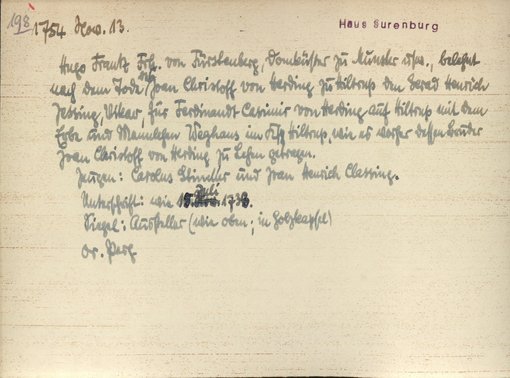 198
1754 Nov. 13.
Haus Surenburg
Hugo Frantz Frh. von Fürstenberg, Domküster zu Münster usw., belehnt
nach dem Tode des Joan Christoff von Herding zu Hiltrup den Gerad Henrich
Jessing, Vikar, für Ferdinandt Casimir von Herding auf Hiltrup mit dem
Erbe und Mannlehen Weghaus im Kspl Hiltrup, wie es vorher dessen Bruder
Joan Christoff von Herding zu Lehen getragen.
Zeugen: Carolus Stindler und Joan Henrich Classing.
Unterschrift: wie 15. Juli 1733.
Siegel: Aussteller (wie oben; in Holzkapsel)
Or. Perg.